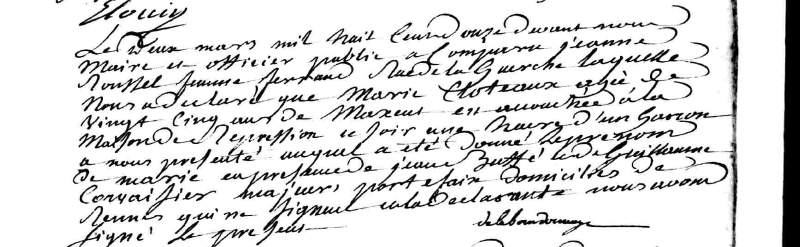 Elouin
Le deux mars mil huit cent douze devant nous
Maire et officier public a Comparu jeanne
Roussel femme fernand Rue de la Guerche laquelle
Nous a declaré que Marie Cloteaux agée de
Vingt Cinq ans de Maxent est accouchée a la
Maison de Repression ce soir une heure d'un Garcon
a nous presenté auquel a eté donné le prenom
de marie en presence de jean Buffé de Guillaume
Corvaisier majeurs portefaix domiciliés de
Rennes qui ne signent ni la declarante nous avons
signé le present